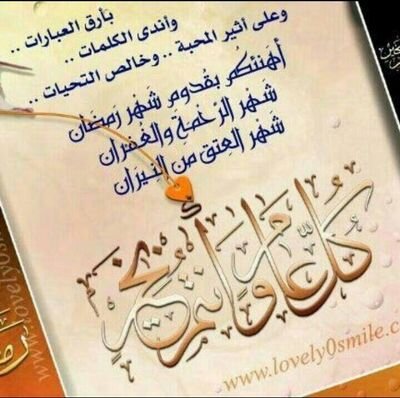 بأرق العبارات ..
وأندى الكلمات ..
وعلى أثير المحبة .. وخالص التحيات ..
أهنئكم بقدوم شهر رمضان
شهر الرحمة والغفران
شهر العتق من النيران
كل عام وأنتم بخير
www.lovely0smile.c